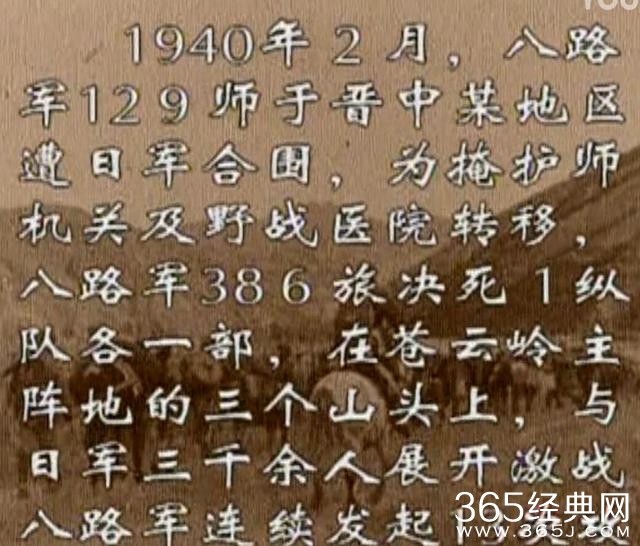 1940年2月，八路
军129师于晋中某地区
遭日军合围，为掩护师
机关及野战医院转移，
八路军386旅决死1纵
队各一部，在苍云岭主
阵地的三个山头上，与
日军三千余人展开激战
八路军连续发起
365经典网
WWW.365J.COM